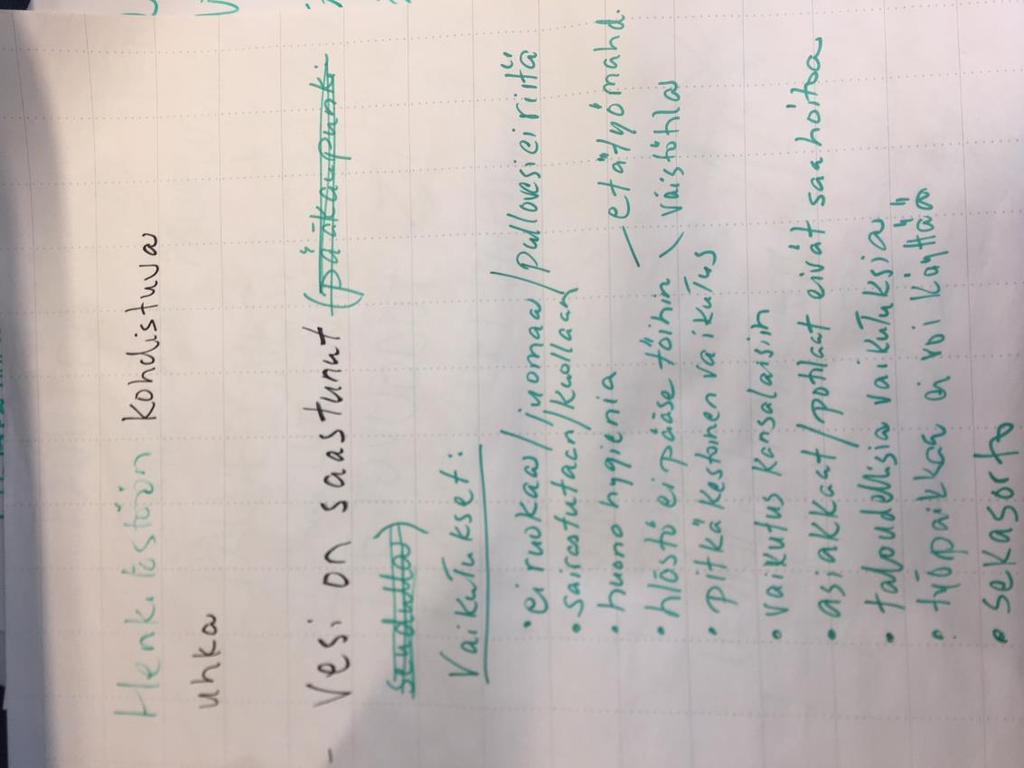 Henkilöstöön kohdistuva
uhka
- Vesi on saastunut (pääkaupunki-
seudulla)
Vaikutukset:
• ei ruokaa/juomaa/pullovesiciriitä
• sairastutaan/kuollaan
• huono hygienia
• hlöstö ei pääse töihin – etätyömahd.
\ väistötila
• pitkäkestoinen vaikutus
• vaikutus kansalaisiin
• asiakkaat/potilaat eivät saa hoitoa
• taloudellisia vaikutuksia
• työpaikkaa ei voi käyttää
• sekasorto